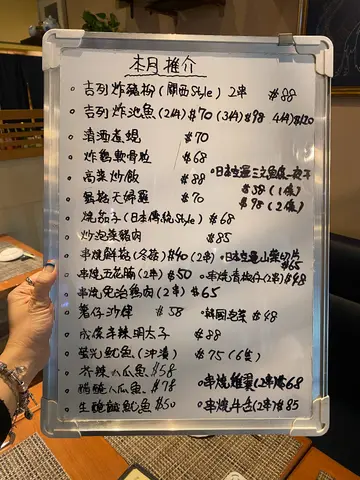 本月推介
• 吉列炸豬扒(關西Style) 2串 $88
• 吉列炸池魚(2件)$70 (3件)$98 4件$120
• 清酒煮蜆 $70
• 炸鷄軟骨粒 $68
• 高菜炒飯 $88 • 日本生曬三文魚波一夜干
$58 (1條)
• 鮮菇天婦羅 $70
$98 (2條)
• 燒茄子(日本傳統Style) $68
• 炒泡菜豬肉 $85
• 串燒鮮菇(冬菇)$40(2串) • 日本生曬山葵切片
$65
• 串燒五花腩(2串)$50 • 串燒青椒仔(2串)$48
• 串燒免治鷄肉(2串)$65
• 薯仔沙律 $58 • 韓國泡菜 $48
• 成條辛辣明太子 $88
• 螢光魷魚(沖漬) $75(6隻)
• 芥辣八瓜魚 $58
• 醋醃八瓜魚 $78 • 串燒雞翼(2串)$68
• 生醃鹹魷魚 $50 • 串燒牛舌(2串)$85